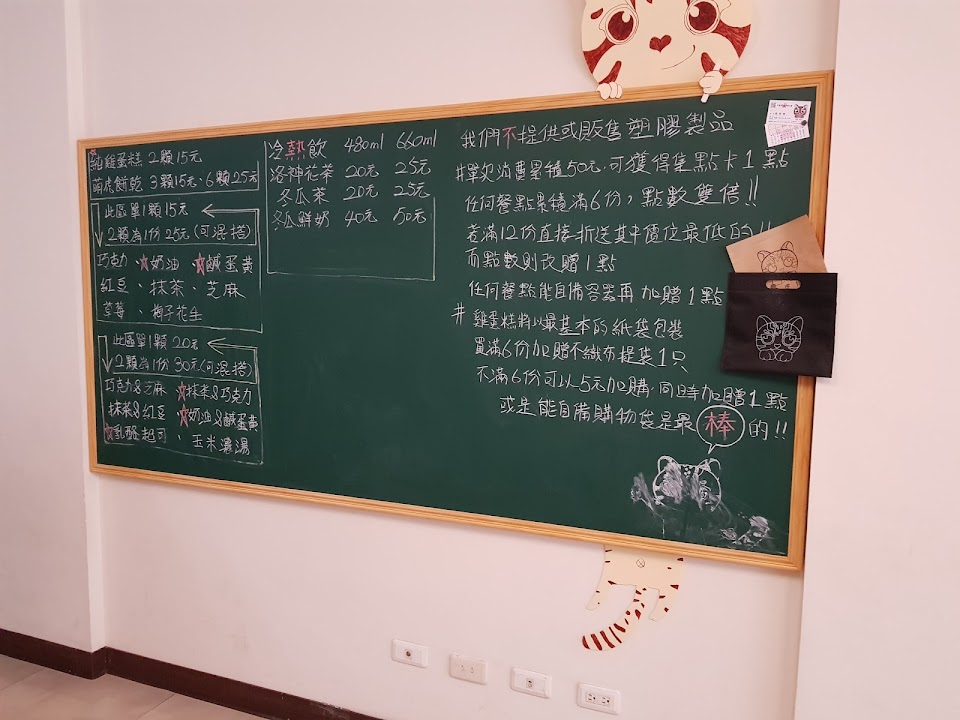 純雞蛋糕 2顆15元
萌虎餅乾 3顆15元、6顆25元
此區單1顆15元
2顆為1份25元(可混搭)
巧克力、☆奶油、☆鹹蛋黃
紅豆、抹茶、芝麻
草莓、梅子花生
此區單1顆20元
2顆為1份30元(可混搭)
巧克力&芝麻 ☆抹茶&巧克力
抹茶&紅豆 ☆奶油&鹹蛋黃
☆乳酪起司、玉米濃湯
冷熱飲 480ml 660ml
洛神花茶 20元 25元
冬瓜茶 20元 25元
冬瓜鮮奶 40元 50元
我們不提供或販售塑膠製品
#單次消費累積50元.可獲得集點卡1點
任何餐點累積滿6份，點數雙倍!!
若滿12份直接折送其中價位最低的!!
而點數則改贈1點
任何餐點能自備容器再加贈1點
#雞蛋糕將以最基本的紙袋包裝
買滿6份加贈不織布提袋1只
不滿6份可以5元加購.同時加贈1點
或是能自備購物袋是最棒的!!